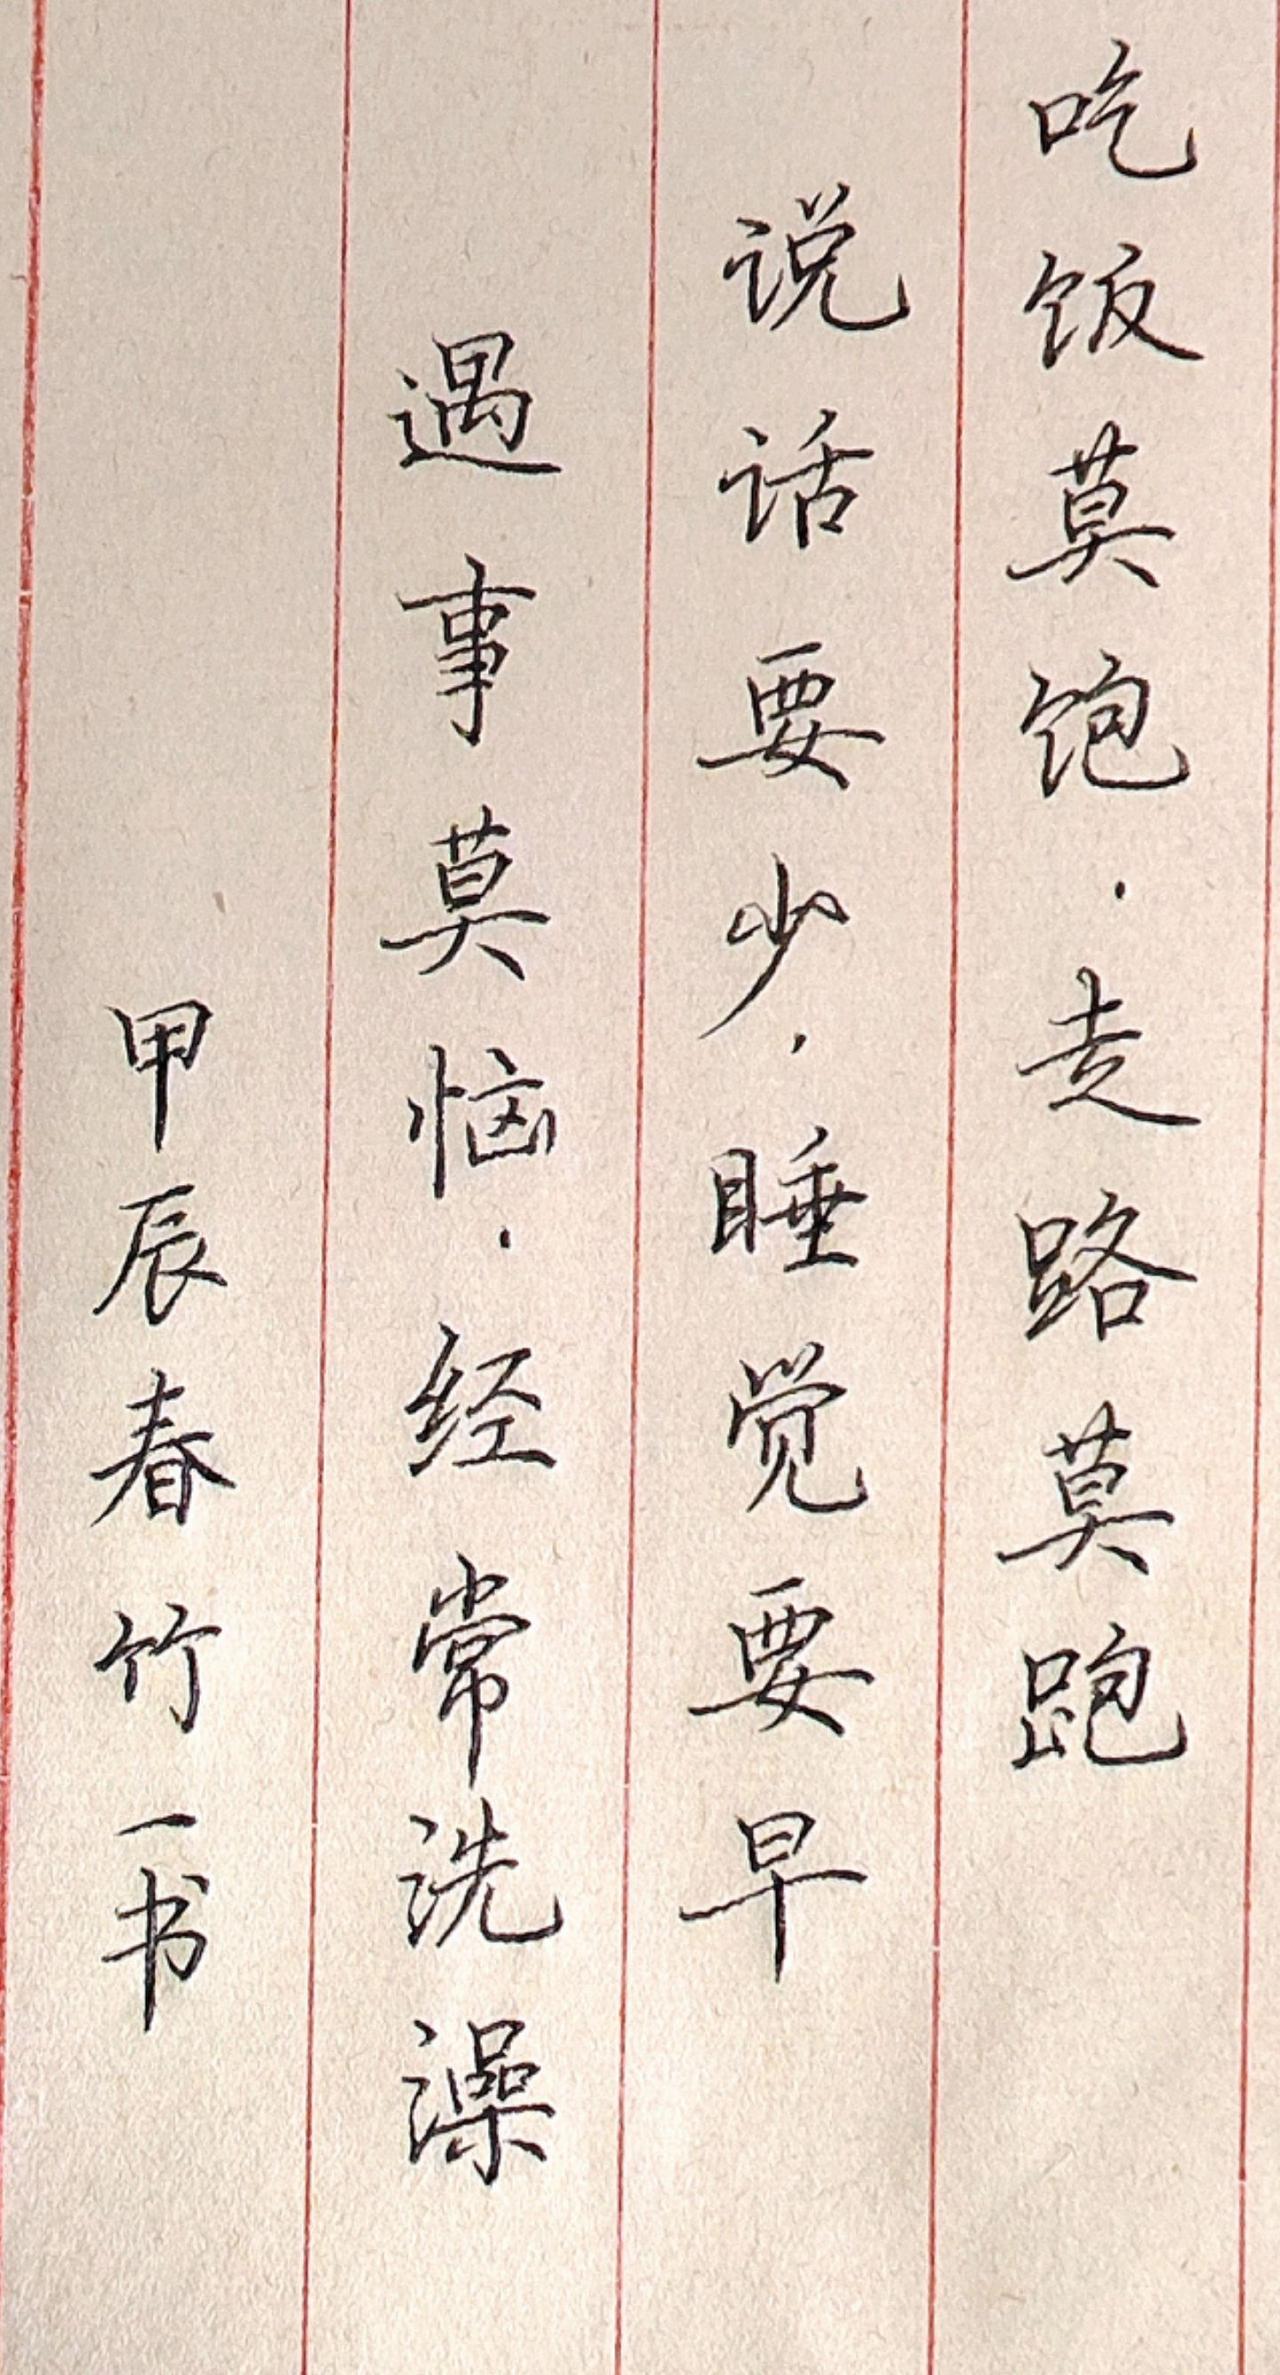 吃饭莫饱．走路莫跑
说话要少．睡觉要早
遇事莫恼．经常洗澡
甲辰春竹一书